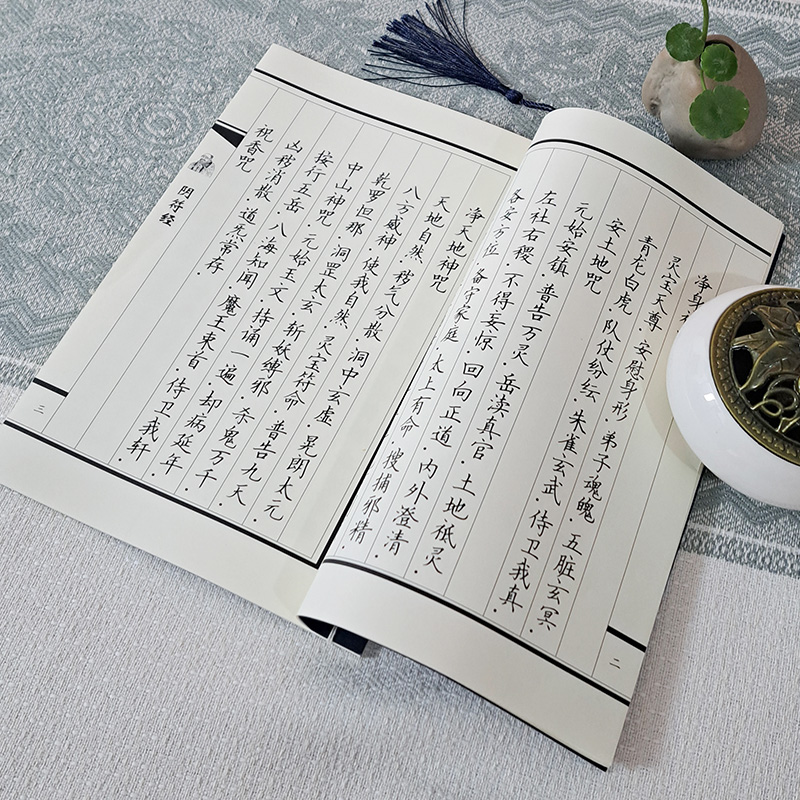 净身
灵宝天尊．安慰身形．弟子魂魄．五脏玄冥．
青龙白虎．队仗纷纭．朱雀玄武．侍卫我真．
安土地咒
元始安镇．普告万灵．岳渎真官．土地祇灵
左社右稷．不得妄惊．回向正道．内外澄清．
各安方位．备守家庭．太上有命．搜捕邪精．
二
净天地神咒
天地自然．秽气分散．洞中玄虚．晃朗太元．
八方威神．使我自然．灵宝符命．普告九天．
乾罗怛那．洞罡太玄．斩妖缚邪．杀鬼万千．
中山神咒．元始玉文．持诵一遍．却病延年．
按行五岳．八海知闻．魔王束首．侍卫我轩．
凶秽消散．道炁常存．
祝香咒
阴符经
三